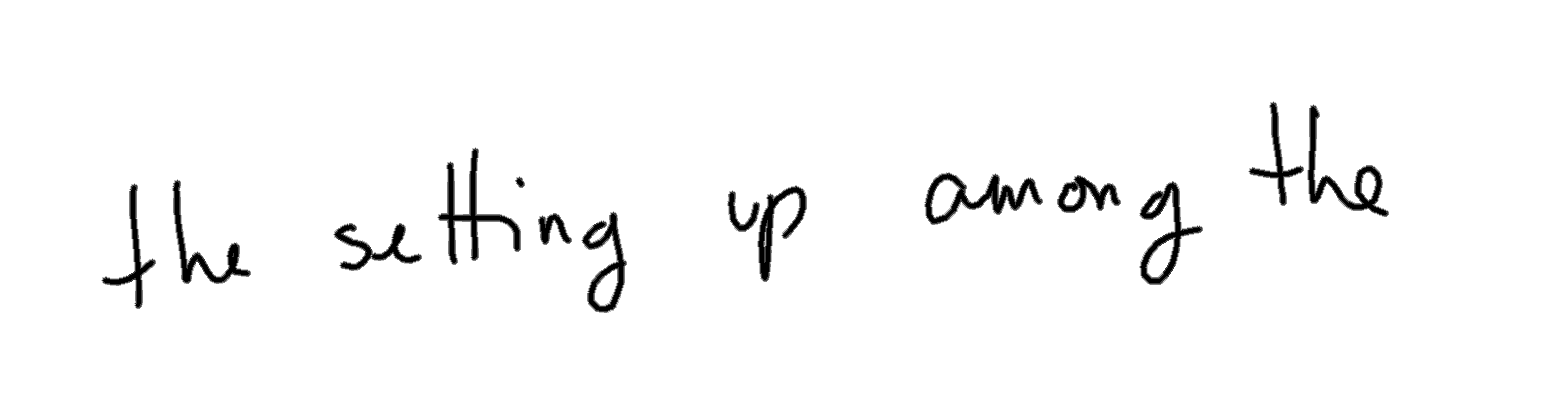 the setting up among the